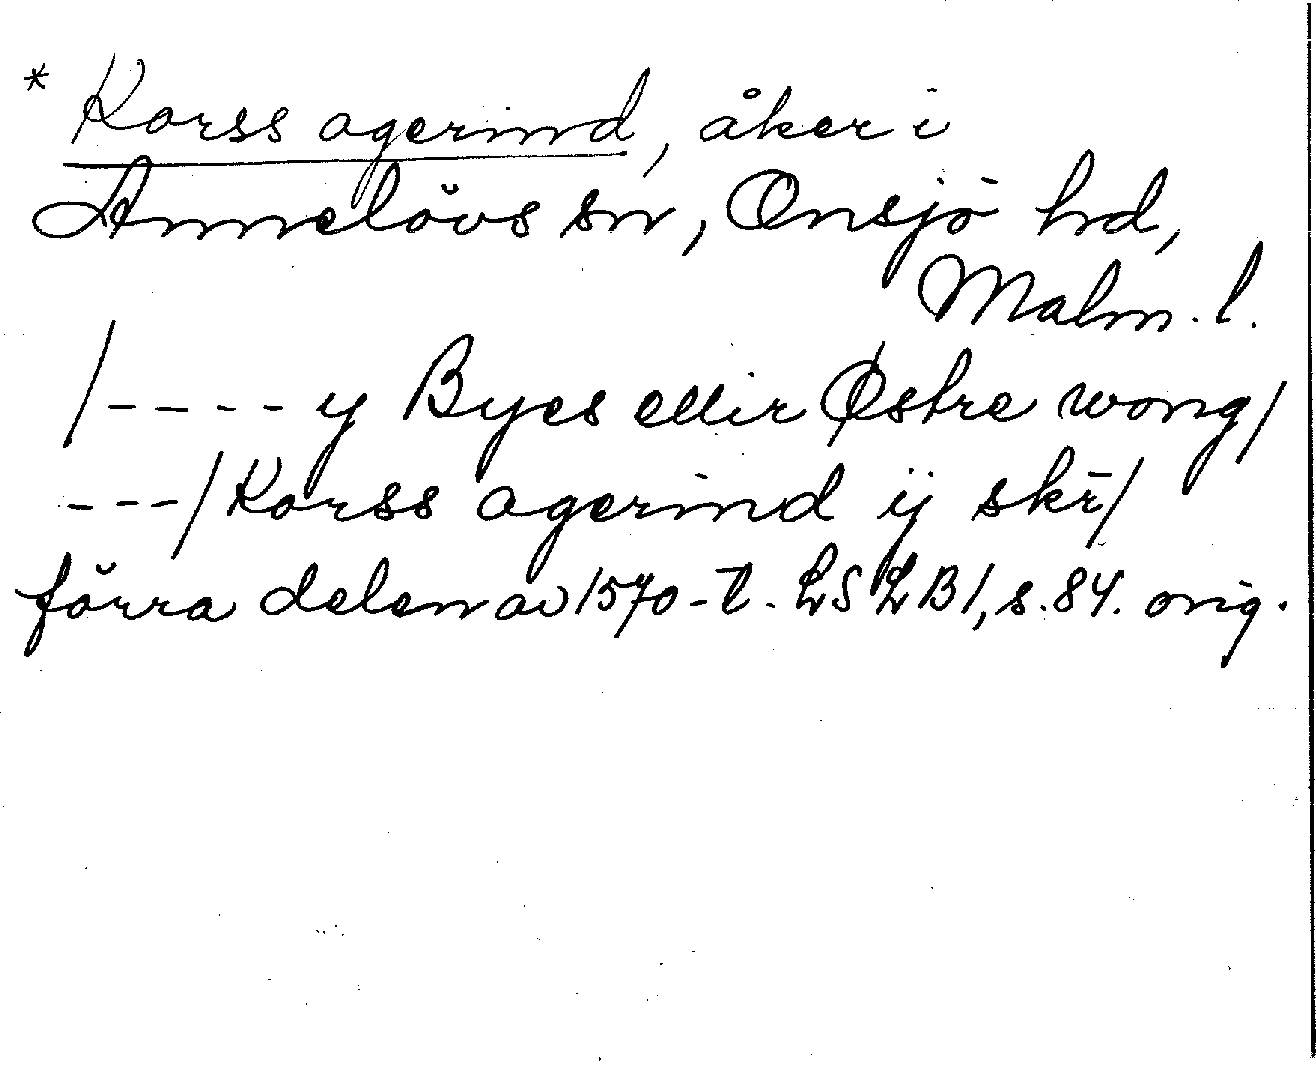 * Korss agerind, åker i
Annelövs sn, Onsjö hd,
Malm. l.
/---- y Byes ellir Østre wong/
---/Korss agerind ij skr/
förra delen av 1570-t. LSLB1, s. 84. orig.